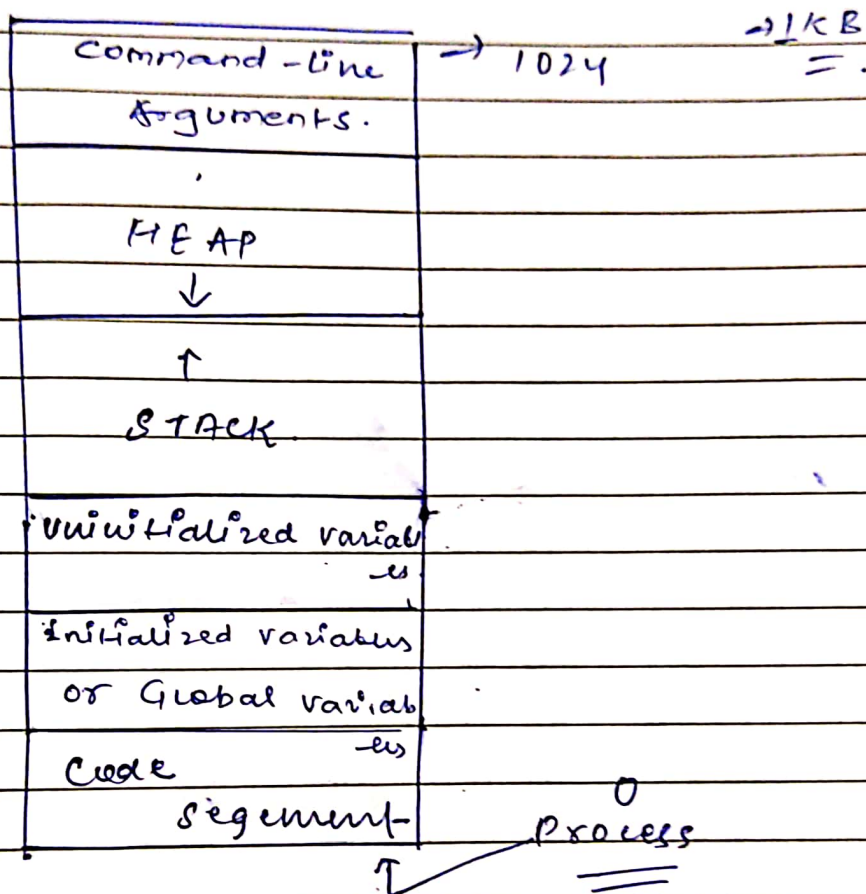 Command-line → 1024 → 1KB
Arguments.
HEAP
↓
↑
STACK.
uninitialized variabl
es
initialized variables
or Global variabl
es
Code
segement
0
Process